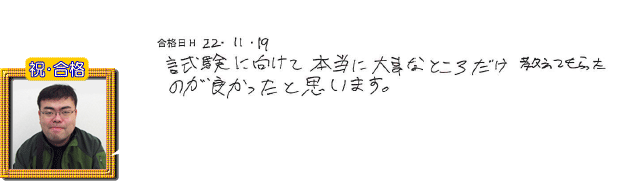 祝・合格
合格日 H 22・11・19
試験に向けて本当に大事なところだけ教えてもらった
のが良かったと思います。